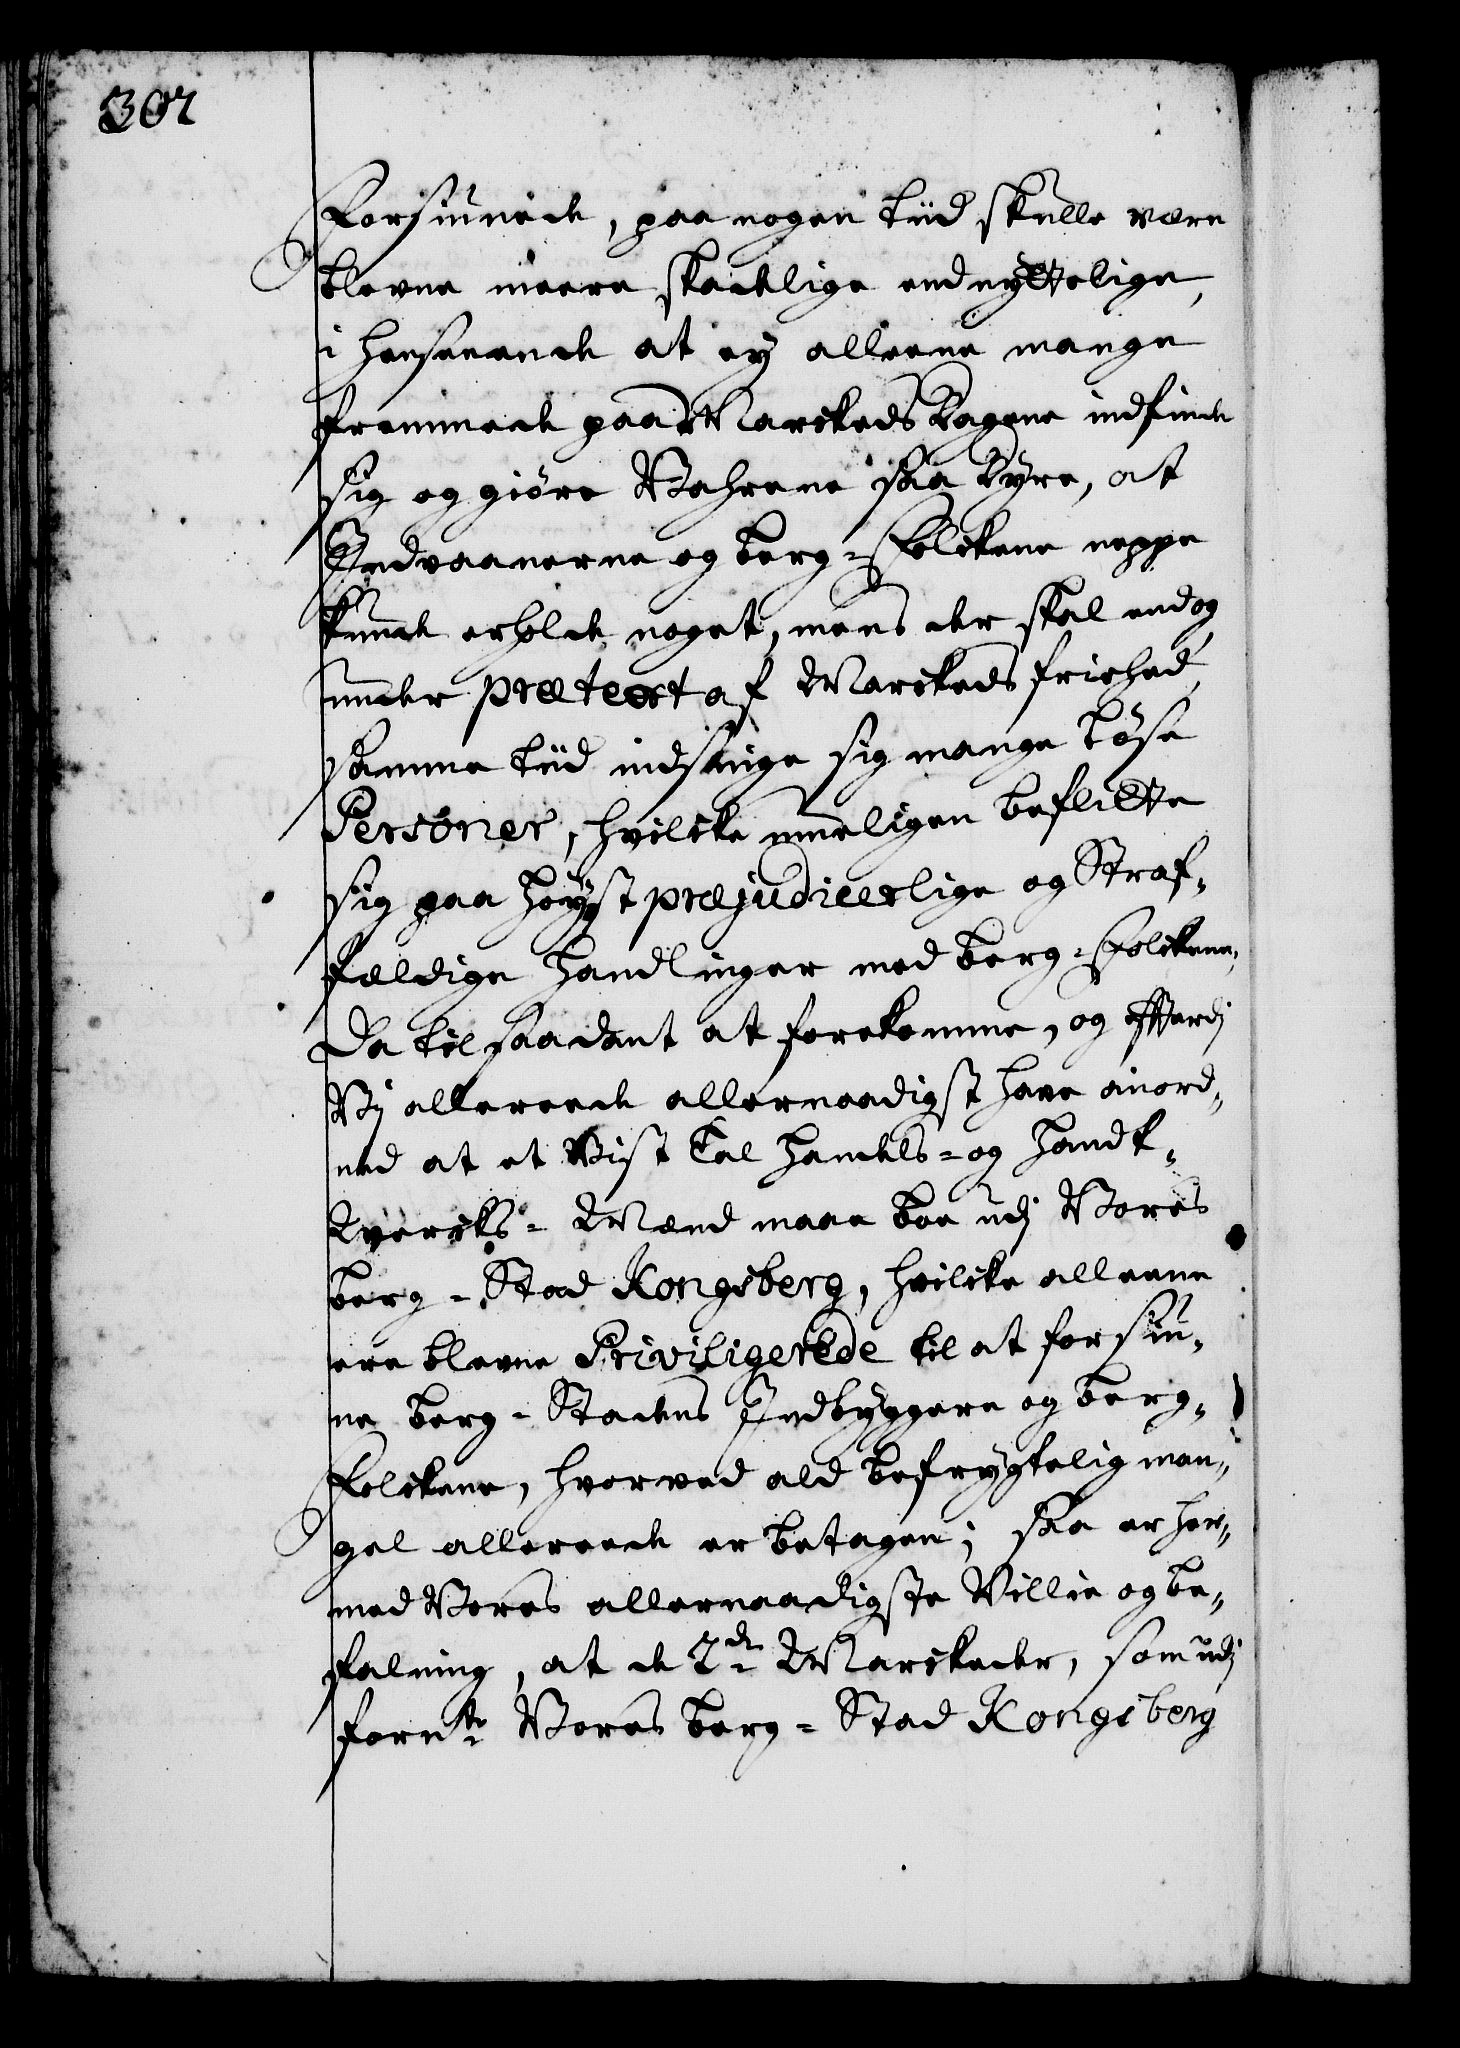 302
forsiunede, paa nogen tiid skulle være
blevne meere skadelige end nyttelige,
i henseende at ey alleene mange
fremmede paa Markeds Dagene indfinde
sig og giøre Vahrene saa dyre, at
Indvaanerne og berg-Folckene neppe
kunde erholde noget, mens der skal endog
under prætext af Marckeds friehed,
samme tiid indsnige sig mange løse
Personer, hvilcke umeligen beflitte
sig paa høyst præjudicerlige og Straf-
fældige handlinger med berg-Folckene,
da til saadant at forekomme, og efterdj
Vj allereede allernaadigst have anord-
ned at et vist Tal handels- og handt-
Vercks-Mænd maae boe udj Vores
berg-Stad Kongsberg, hvilcke alleene
ere blevne Priviligerede til at forsiu-
ne berg-Stadens Indbyggere og berg-
Folckene, hvorved ald befrygtelig man-
gel allereede er betagen; saa er her-
med Vores allernaadigste Villie og be-
falning, at de 2de Marckeder, som udj
fornte Vores berg-Stad Kongsberg